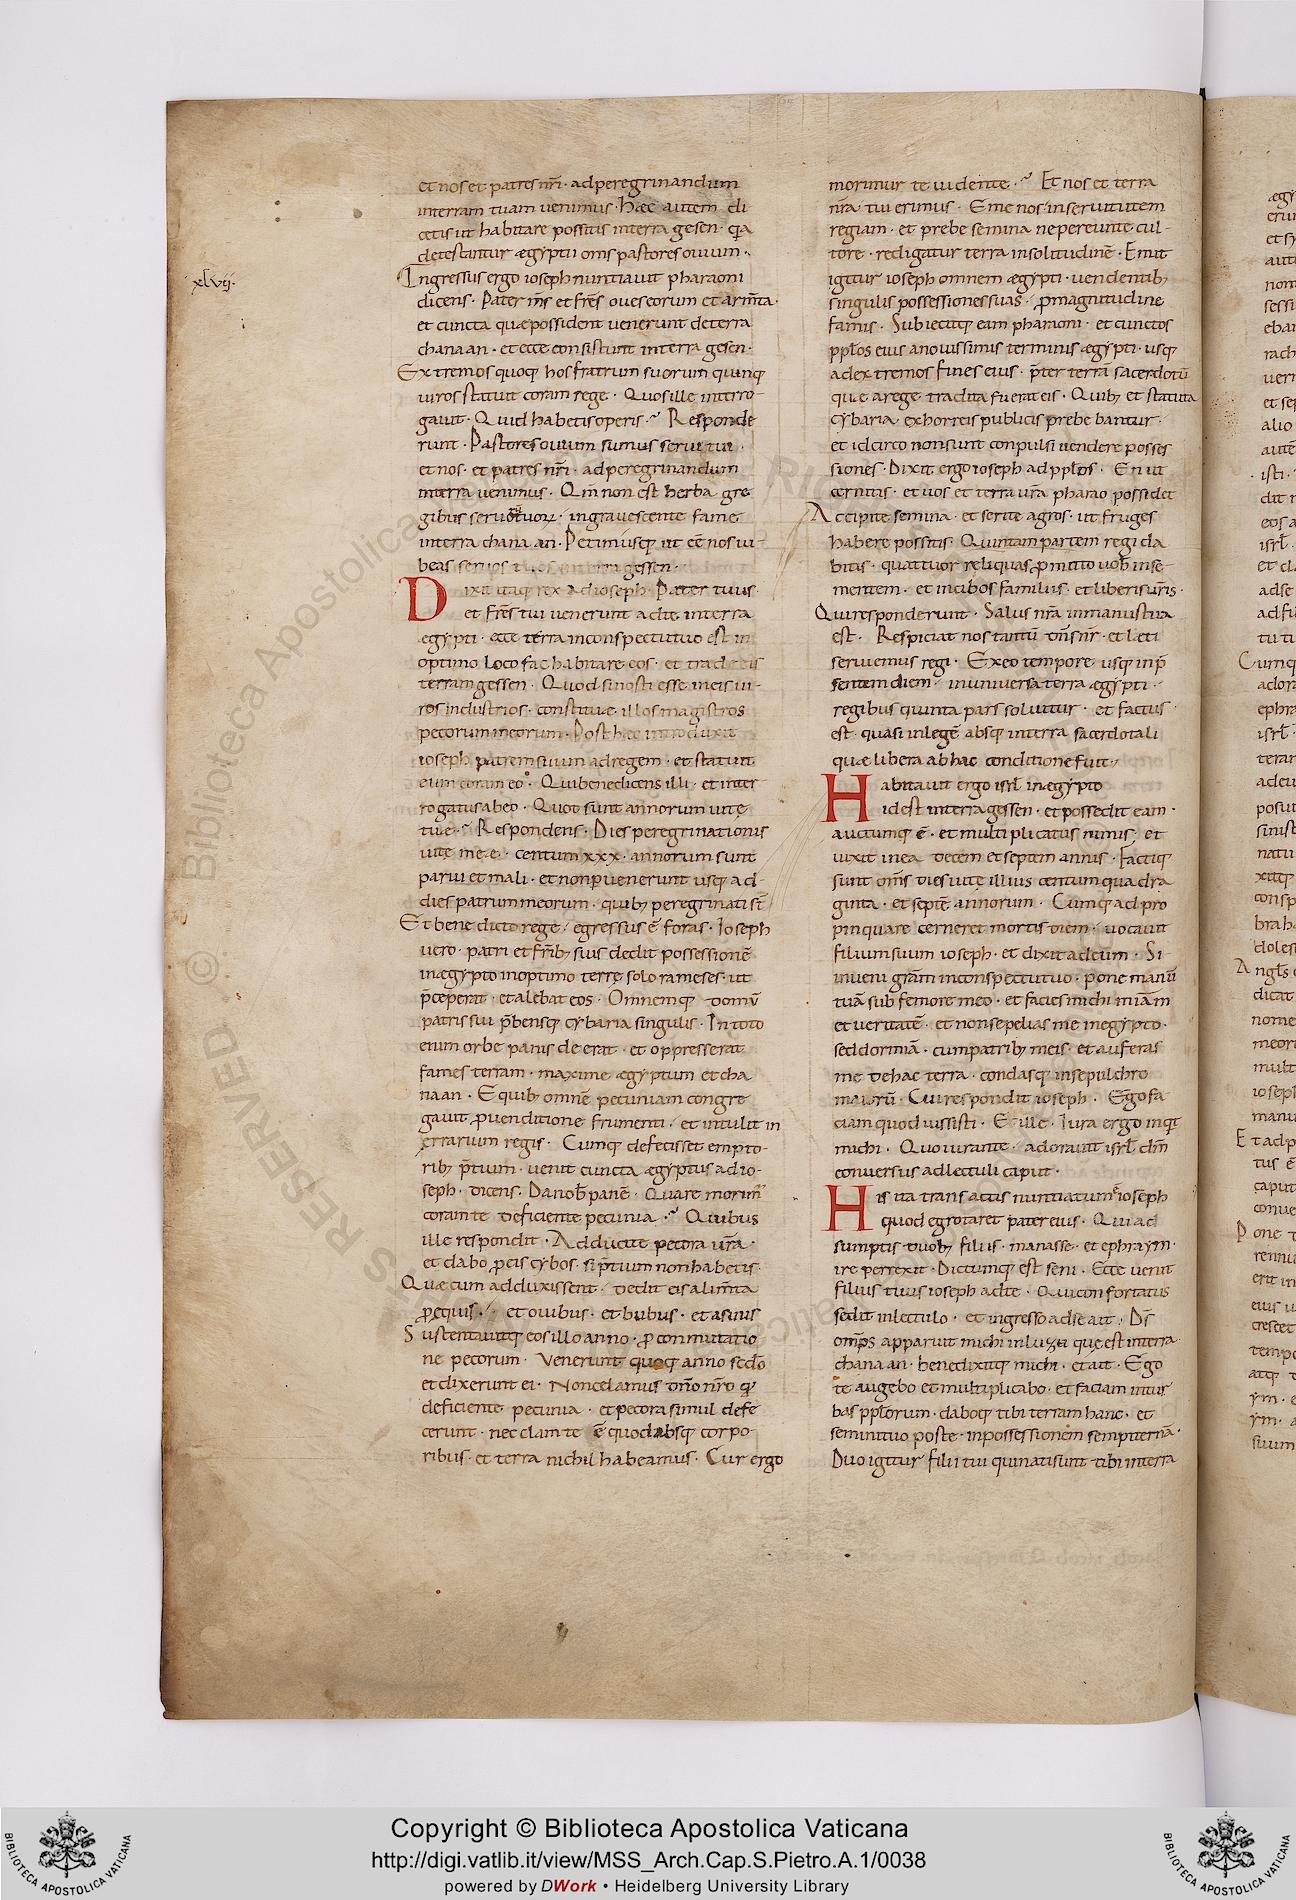 xlvij.
et nos et patres nr̄i · ad peregrinandum
in terram tuam uenimus · Haec autem di
cetis ut habitare possitis in terra gesen · q̄a
detestantur ægyptii om̄s pastores ouium ·
Ingressus ergo ioseph nuntiauit pharaoni
dicens · Pater m̄s et fr̄es oues eorum et arm̄ta ·
et cuncta quæ possident uenerunt de terra
chanaan · et ecce consistunt in terra gesen ·
Extremos quoq; hos fratrum suorum quinq;
uiros statuit coram rege · Quos ille interro-
gauit · Quid habetis operis · Responde
runt · Pastores ouium sumus serui tui ·
et nos · et patres nr̄i · ad peregrinandum
in terra uenimus · Qm̄ non est herba gre
gibus · ingrauescente fame
in terra chanaan · Petimusq; ut eē nos iu-
beas seruos tuos in terra gessen ·
Dixit itaq; rex ad ioseph · Pater tuus
et fr̄es tui uenerunt ad te in terra
egypti · ecce terra in conspectu tuo est in
optimo loco fac habitare eos · et trade eis
terram gessen · Quod si nosti esse in eis ui-
ros industrios · constitue illos magistros
pecorum meorum · Post hec introduxit
ioseph patrem suum ad regem · et statuit
eum coram eo · Qui benedicens illi · et inter
rogatus ab eo · Quot sunt annorum uitę
tuę · Respondens · Dies peregrinationis
uite meæ · centum xxx · annorum sunt
parui et mali · et non p̱uenerunt usq; ad
dies patrum meorum · quib; peregrinati st̄
Et benedicto rege · egressus ē foras · Ioseph
uero · patri et fr̄ib; suis dedit possessionē
in ægypto in optimo terrę solo rameses · ut
p̄ceperat · et alebat eos · Omnemq; domū
patris sui p̄bensq; cybaria singulis · In toto
enim orbe panis deerat · et oppresserat
fames terram · maxime ægyptum et cha
naan · E quib; omnē pecuniam congre
gauit ꝓ uenditione frumenti · et intulit in
errarium regis · Cumq; defecisset empto-
rib; p̄tium · uenit cuncta ægyptus ad io-
seph · dicens · Da nob̄ panē · Quare morim̄
coram te deficiente pecunia · Quibus
ille respondit · Adducite pecora ur̄a ·
et dabo ꝓ eis cybos · si p̄tium non habetis ·
Quæ cum adduxissent · dedit eis alim̄ta
ꝓ equis · et ouibus · et bubus · et asinis
Sustentauitq; eos illo anno · ꝓ conmutatio
ne pecorum · Venerunt quoq; anno sec̄do
et dixerunt ei · Non celamus dn̄o nr̄o q̄
deficiente pecunia · et pecora simul defe
cerunt · nec clam te ē quod absq; corpo-
ribus · et terra nichil habeamus · Cur ergo
morimur te uidente · Et nos et terra
nr̄a tui erimus · Eme nos in seruitutem
regiam · et prebe semina ne pereunte cul-
tore · redigatur terra in solitudinē · Emit
igitur ioseph omnem ægypti · uendentib;
singulis possessiones suas · p̱ magnitudine
famis · Subiecitq; eam pharaoni · et cunctos
pp̄los eius a nouissimis terminis ægypti · usq;
ad extremos fines eius · p̄ter terrā sacerdotū
quæ a rege tradita fuerat eis · Quib; et statuta
cybaria · ex horreis publicis prebebantur ·
et idcirco non sunt conpulsi uendere posses
siones · Dixit ergo ioseph ad pp̄los · En ut
cernitis · et uos et terra ur̄a pharao possidet
Accipite semina · et serite agros · ut fruges
habere possitis · Quintam partem regi da
bitis · quattuor reliquas p̱mitto uob̄ in se-
mentem · et in cibos familiis · et liberis ur̄is ·
Qui responderunt · Salus nr̄a in manu s tua
est · Respiciat nos tantū dn̄s nr̄ · et leti
seruiemus regi · Ex eo tempore · usq; in p̄
sentem diem · in uniuersa terra ægypti ·
regibus quinta pars soluitur · et factus
est · quasi in legē absq; in terra sacerdotali
quæ libera ab hac conditione fuit ·
Habitauit ergo isrl̄ in ægypto
id est in terra gessen · et possedit eam ·
auctumq; ē · et multiplicatus nimis · et
uixit in ea decem et septem annis · Factiq;
sunt om̄s dies uite illius centum quadra
ginta · et septē annorum · Cumq; ad pro
pinquare cerneret mortis diem · uocauit
filium suum ioseph · et dixit ad eum · Si
inueni grām in conspectu tuo · pone manū
tuā sub femore meo · et facies michi miām
et ueritatē · et non sepelias me in egypto ·
sed dormiā · cum patrib; meis · et auferas
me de hac terra · condasq; in sepulchro
maiorū · Cui respondit ioseph · Ego fa
ciam quod iussisti · Et ille · Iura ergo inqt
michi · Quo iurante · adorauit isrl̄ dm̄
conuersus ad lectuli caput ·
His ita transactis nuntiatum ē ioseph
quod egrotaret pater eius · Qui ad
sumptis duob; filiis · manasse · et ephraym ·
ire perrexit · Dictumq; est seni · Ecce uenit
filius tuus ioseph ad te · Qui confortatus
sedit in lectulo · et ingresso ad se ait · Ds̄
omp̄s apparuit michi in luza que est in terra
chanaan · benedixitq; michi · et ait · Ego
te augebo et multiplicabo · et faciam in tur
bas pp̄lorum · daboq; tibi terram hanc · et
semini tuo post te · in possessionem sempiternā ·
Duo igitur filii tui qui nati sunt tibi in terra
Copyright © Biblioteca Apostolica Vaticana
http://digi.vatlib.it/view/MSS_Arch.Cap.S.Pietro.A.1/0038
powered by DWork • Heidelberg University Library